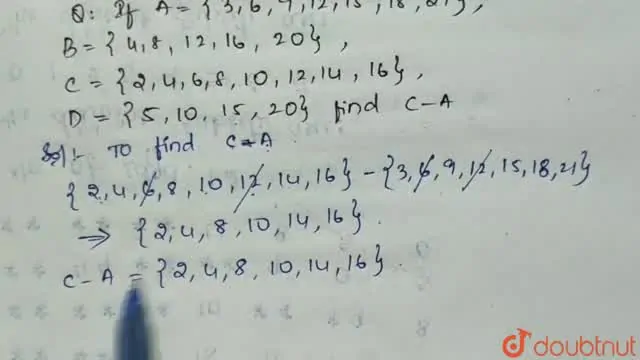 Q: If A = {3,6,9,12,15,18,21},
B = {4,8,12,16,20},
C = {2,4,6,8,10,12,14,16},
D = {5,10,15,20} find C-A
Sol:- To find C-A
{2,4,6,8,10,12,14,16} - {3,6,9,12,15,18,21}
⇒ {2,4,8,10,14,16}.
C-A = {2,4,8,10,14,16}.
doubtnut